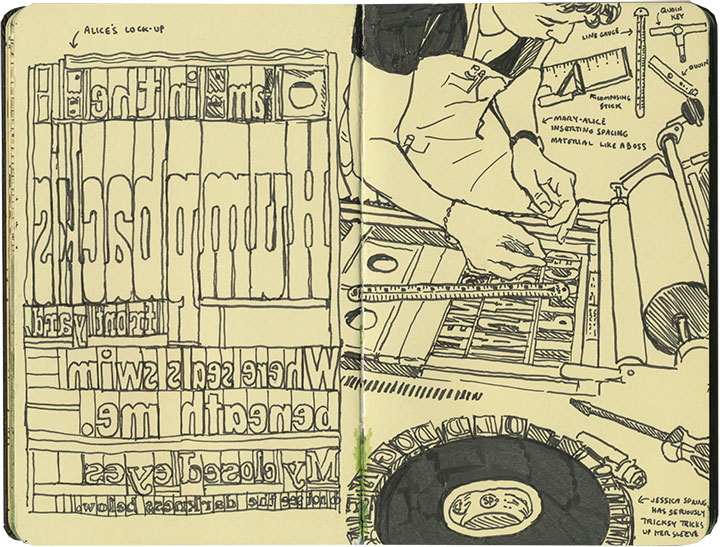 ALICE'S LOCK-UP
I am in the
Humpbacks
front yard
Where seals swim
beneath me.
My closed eyes
not see the darkness below.
QUOIN
KEY
LINE GAUGE
QUOIN
COMPOSING
STICK
MARY-ALICE
INSERTING SPACING
MATERIAL LIKE A BOSS
OLD DOG
JESSICA SPRING
HAS SERIOUSLY
TRICKSY TRICKS
UP HER SLEEVE